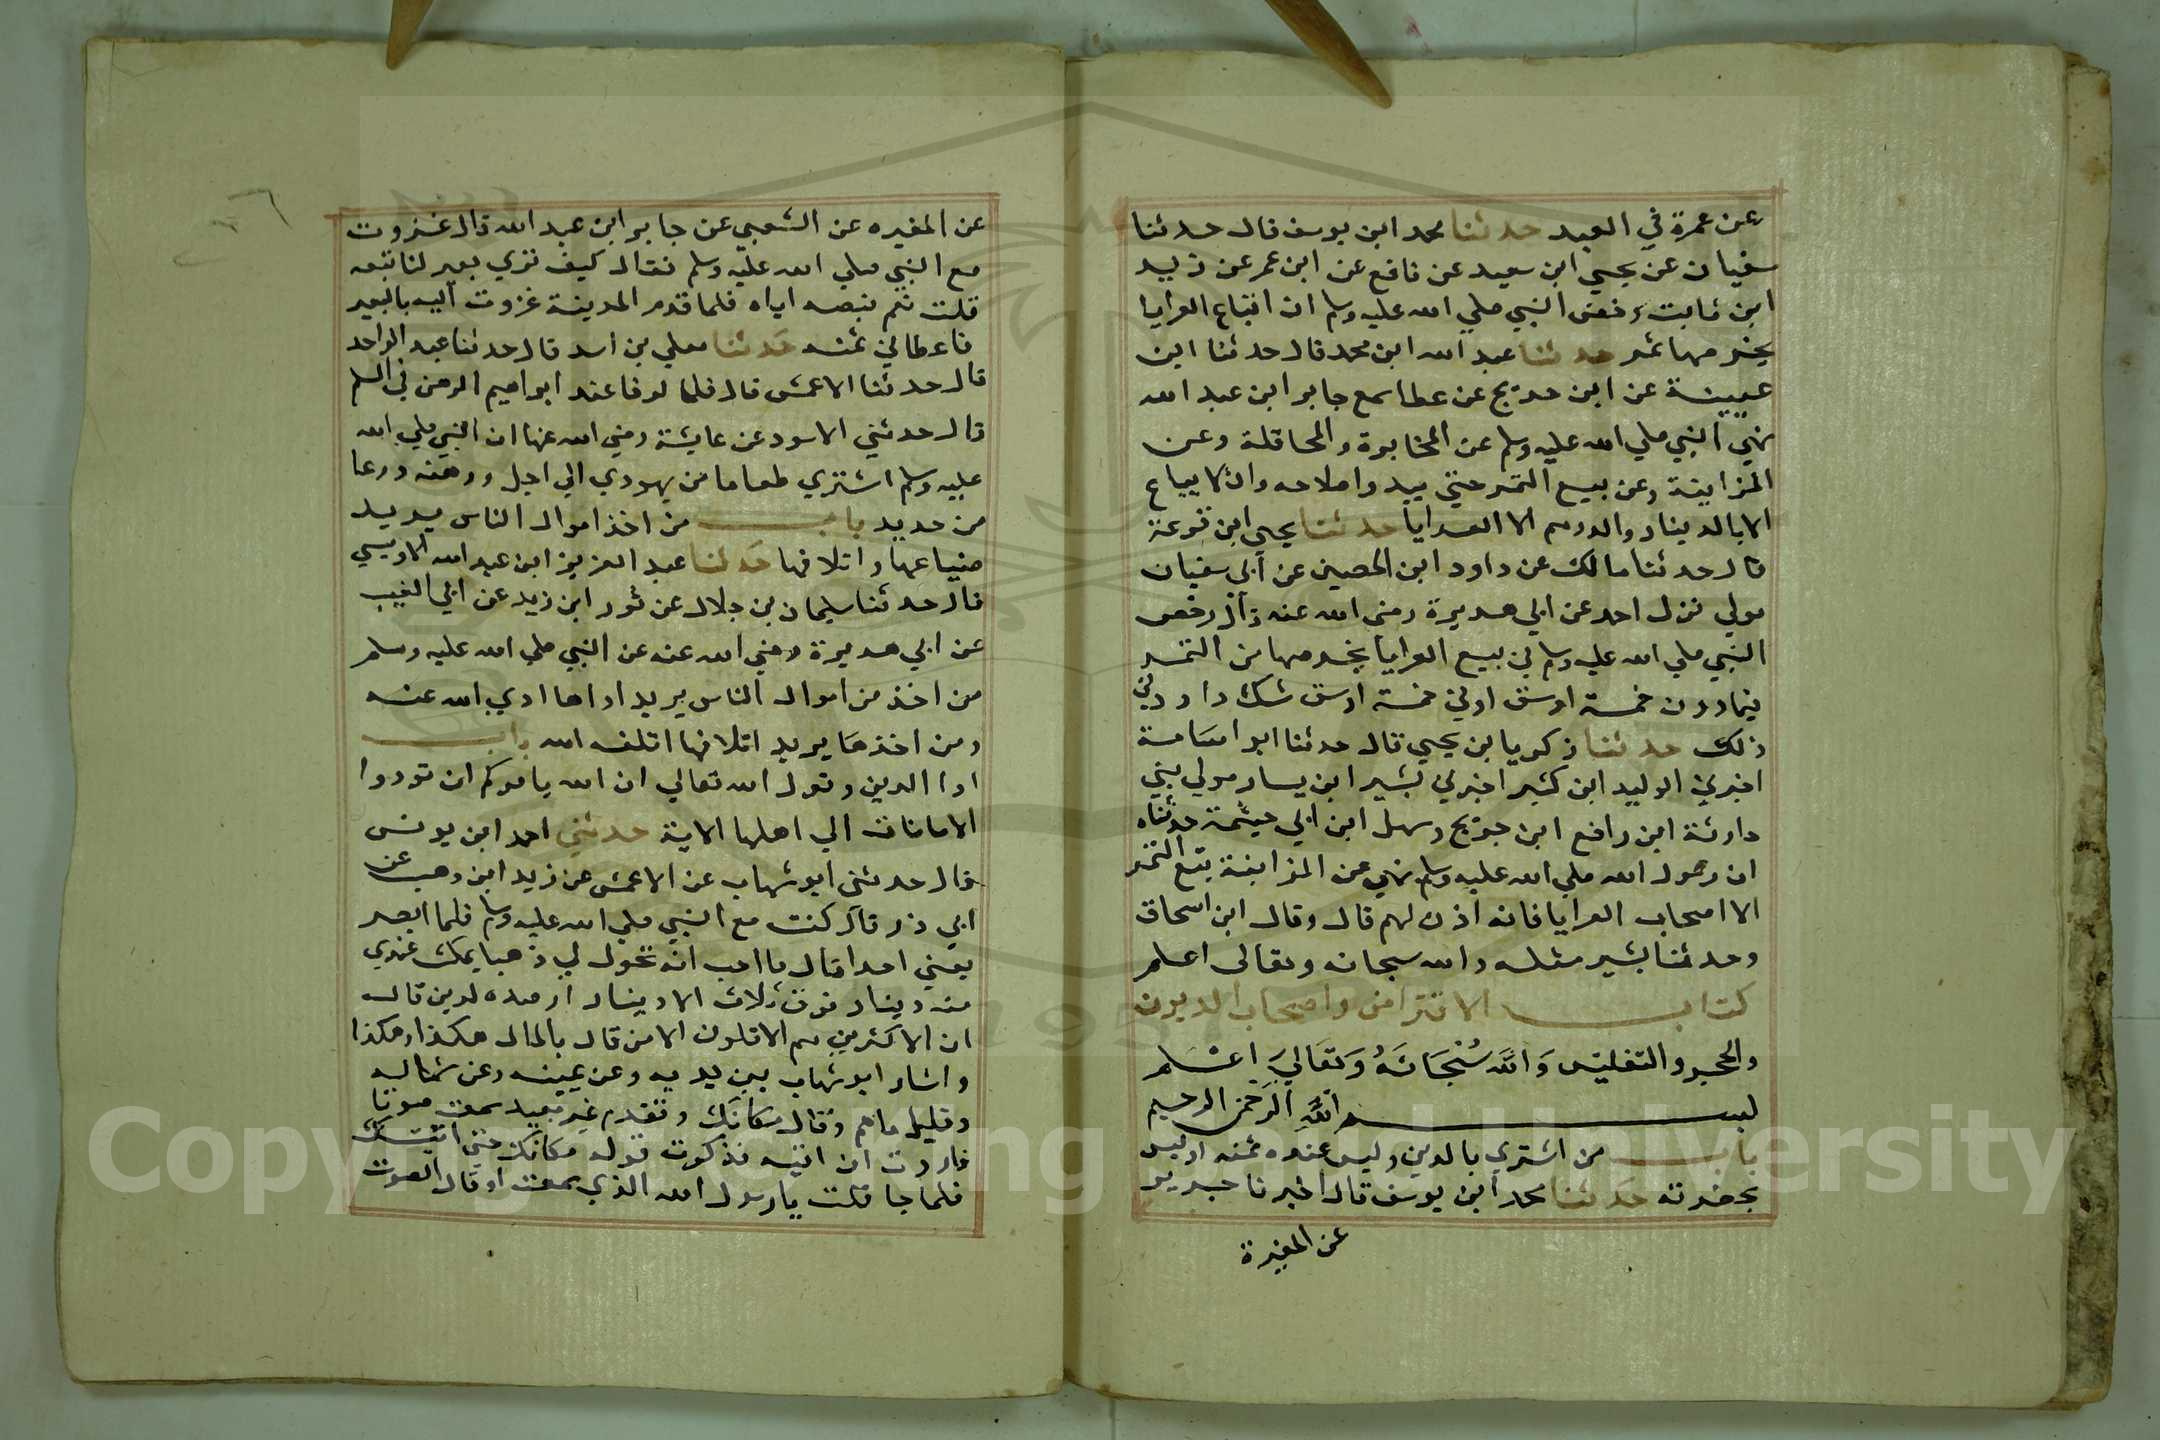 عن عمرة في العبد حدثنا محمد ابن يوسف قال حدثنا
سفيان عن يحيي ابن سعيد عن نافع عن ابن عمر عن زيد
ابن ثابت رخص النبي صلي الله عليه وسلم ان تباع العرايا
بخرصها تمر حدثنا عبد الله ابن محمد قال حدثنا ابن
عيينة عن ابن جريج عن عطا سمع جابر ابن عبد الله
نهي النبي صلي الله عليه وسلم عن المخابرة والمحاقلة وعن
المزابنة وعن بيع التمر حتي يبدوا صلاحه وان لا يباع
الا بالدينار والدرهم الا العرايا حدثنا يحيي ابن قزعة
قال حدثنا مالك عن داود ابن الحصين عن ابي سفيان
مولي احمد عن ابي هريرة رضي الله عنه قال رخص
النبي صلي الله عليه وسلم في بيع العرايا بخرصها من التمر
فيما دون خمسة اوسق او في خمسة اوسق شك داود في
ذلك حدثنا زكريا بن يحيي قال حدثنا ابو اسامة
اخبرني الوليد ابن كثير اخبرني بشير ابن يسار مولي بني
حارثة ابن رافع ابن خديج وسهل ابن ابي حيثمة حدثناه
ان رسول الله صلي الله عليه وسلم نهي عن المزابنة بيع التمر
الا اصحاب العرايا فانه اذن لهم قال وقال ابن اسحاق
وحدثنا بشير مثله والله سبحانه وتعالى اعلم
كتاب الاقتراض واصحاب الديون
والحجر والتفليس وَاللَّه سُبْحَانَهُ وَتَعَالَي اعلم
بسم اللَّه الرَّحمن الرحيم
باب من اشتري بالدين وليس عنده ثمنه او ليس
بحضرته حدثنا محمد ابن يوسف قال اخبرنا جرير
عن المغيرة
عن المغيره عن الشعبي عن جابر ابن عبد الله قال غزوت
مع النبي صلي الله عليه وسلم فقال كيف تري بعير لنا تبعه
قلت نعم فبعه اياه فلما قدم المدينة غزوت اليه بالبعير
فاعطاني ثمنه حدثنا معلي بن اسد قال حدثنا عبد الواحد
قال حدثنا الاعمش قال فلما لوفا عند ابراهيم الرهن في السلم
قال حدثني الاسود عن عايشة رضي الله عنها ان النبي صلي الله
عليه وسلم اشتري طعاما من يهودي الي اجل ورهنه درعا
من حديد باب من اخذ اموال الناس يريد
ضياعها واتلافها حدثنا عبد العزيز ابن عبد الله الاويسي
قال حدثنا سليمان بن بلال عن ثور ابن زيد عن ابي الغيب
عن ابي هريرة رضي الله عنه عن النبي صلي الله عليه وسلم
من اخذ من اموال الناس يريد اداها ادي الله عنه
ومن اخذها يريد اتلافها اتلفه الله باب
ادا الدين وقول الله تعالي ان الله يامركم ان تودوا
الامانات الي اهلها الاية حدثني احمد ابن يونس
قال حدثني ابو شهاب عن الاعمش عن زيد ابن وهب عن
ابي ذر قال كنت مع النبي صلي الله عليه وسلم فلما ابصر
يعني احدا قال ما احب انه تحول لي ذهبا يمكث عندي
منه دينار فوق ثلاث الا دينار ارصده لدين قال
ان الاكثرين هم الاقلون الا من قال بالمال هكذا وهكذا
واشار ابو شهاب بين يديه وعن يمينه وعن شماله
وقليل ما هم وقال مكانك وتقدم غير بعيد سمعت صوتا
فاردت ان اتيه فذكرت قوله مكانك حتى اتيتك
فلما جا قلت يا رسول الله الذي سمعت او قال الصوت
Copyright © King Saud University
1957